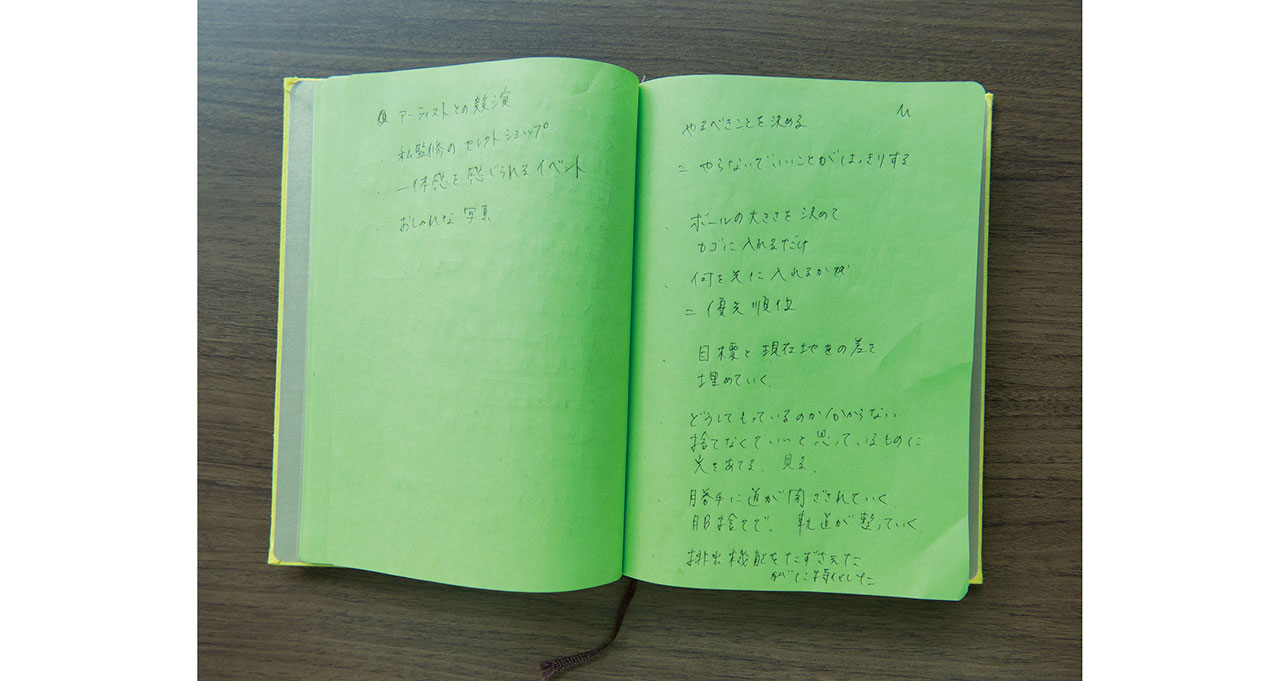 アーティストとの競演
・私監修のセレクトショップ
・一体感を感じられるイベント
・おしゃれな写真
やるべきことを決める
= やらないでいいことがはっきりする
・ボールの大きさを決めて
カゴに入れるだけ
・何を先に入れるか
= 優先順位
・目標と現在地をの差を
埋めていく
どうしてもっているのかわからない
捨てなくていいと思っているものに
光をあてる、見る、
勝手に道が閉ざされていく
捨てで、軌道が整っていく
・排出機能をたずさえた